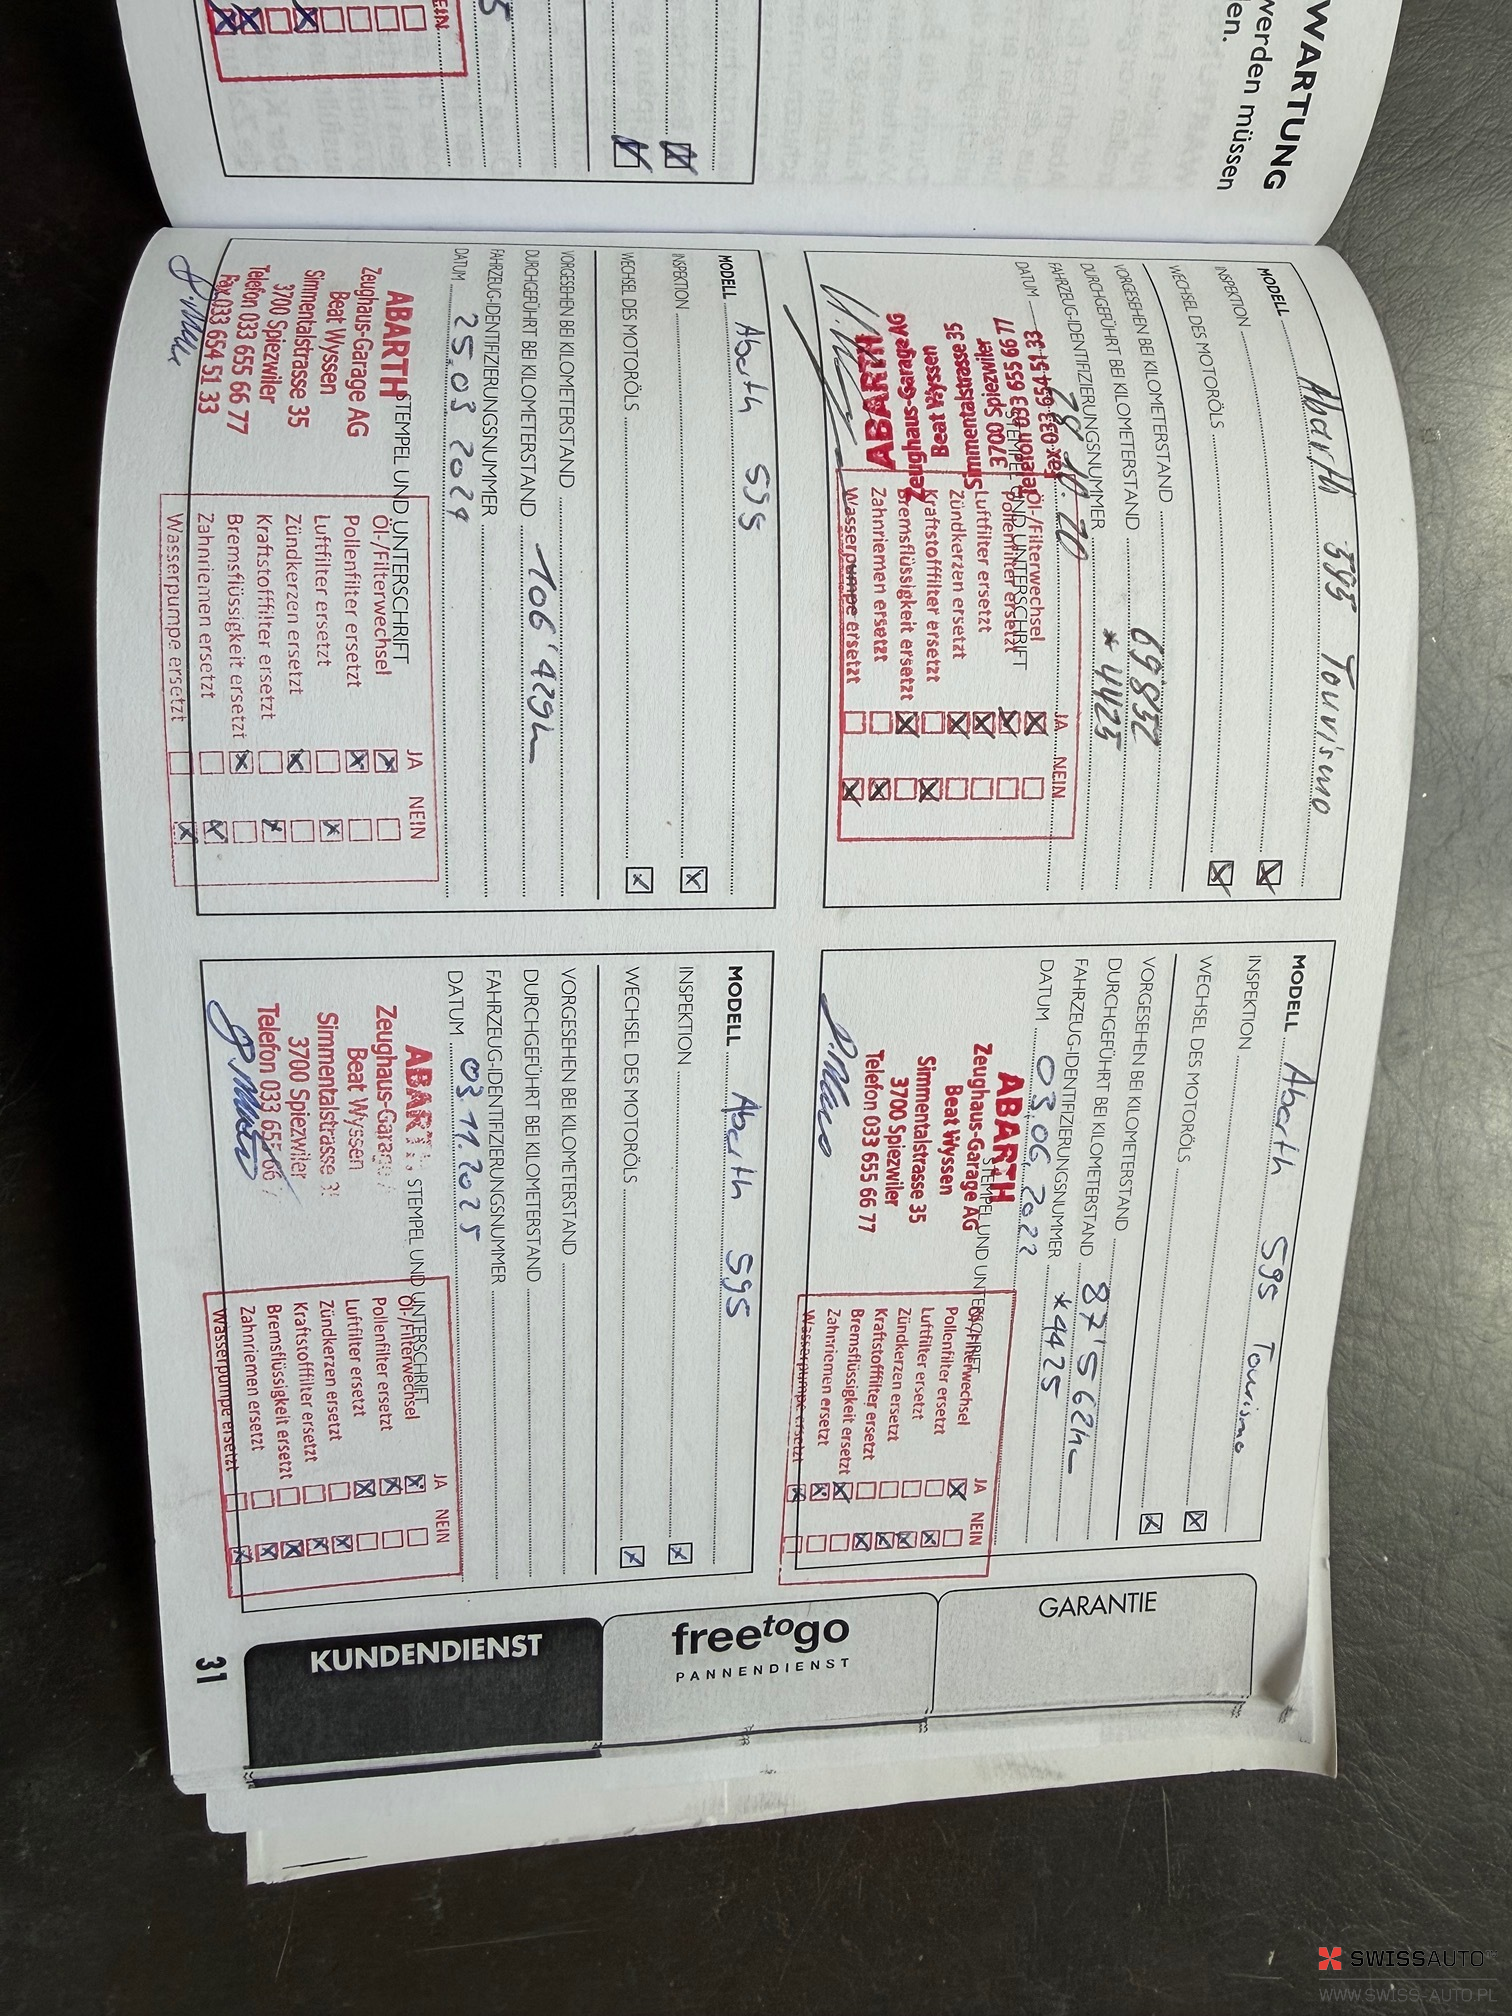 WARTUNG
werden müssen
EIN
MODELL Abarth 595 Tourismo
INSPEKTION
WECHSEL DES MOTORÖLS
VORGESEHEN BEI KILOMETERSTAND
DURCHGEFÜHRT BEI KILOMETERSTAND 69832
FAHRZEUG-IDENTIFIZIERUNGSNUMMER *4425
DATUM
STEMPEL UND UNTERSCHRIFT
ABARTH
Zeughaus-Garage AG
Beat Wyssen
Simmentalstrasse 35
3700 Spiezwiler
Telefon 033 655 66 77
Fax 033 654 51 33
JA NEIN
Öl-/Filterwechsel
Pollenfilter ersetzt
Luftfilter ersetzt
Zündkerzen ersetzt
Kraftstofffilter ersetzt
Bremsflüssigkeit ersetzt
Zahnriemen ersetzt
Wasserpumpe ersetzt
MODELL Abarth 595 Tourismo
INSPEKTION
WECHSEL DES MOTORÖLS
VORGESEHEN BEI KILOMETERSTAND
DURCHGEFÜHRT BEI KILOMETERSTAND 87'562km
FAHRZEUG-IDENTIFIZIERUNGSNUMMER *4425
DATUM 03.06.2022
STEMPEL UND UNTERSCHRIFT
ABARTH
Zeughaus-Garage AG
Beat Wyssen
Simmentalstrasse 35
3700 Spiezwiler
Telefon 033 655 66 77
JA NEIN
Öl-/Filterwechsel
Pollenfilter ersetzt
Luftfilter ersetzt
Zündkerzen ersetzt
Kraftstofffilter ersetzt
Bremsflüssigkeit ersetzt
Zahnriemen ersetzt
Wasserpumpe ersetzt
MODELL Abarth 595
INSPEKTION
WECHSEL DES MOTORÖLS
VORGESEHEN BEI KILOMETERSTAND
DURCHGEFÜHRT BEI KILOMETERSTAND 106'429km
FAHRZEUG-IDENTIFIZIERUNGSNUMMER
DATUM 25.03.2024
STEMPEL UND UNTERSCHRIFT
ABARTH
Zeughaus-Garage AG
Beat Wyssen
Simmentalstrasse 35
3700 Spiezwiler
Telefon 033 655 66 77
Fax 033 654 51 33
JA NEIN
Öl-/Filterwechsel
Pollenfilter ersetzt
Luftfilter ersetzt
Zündkerzen ersetzt
Kraftstofffilter ersetzt
Bremsflüssigkeit ersetzt
Zahnriemen ersetzt
Wasserpumpe ersetzt
MODELL Abarth 595
INSPEKTION
WECHSEL DES MOTORÖLS
VORGESEHEN BEI KILOMETERSTAND
DURCHGEFÜHRT BEI KILOMETERSTAND
FAHRZEUG-IDENTIFIZIERUNGSNUMMER
DATUM 03.11.2025
STEMPEL UND UNTERSCHRIFT
ABARTH
Zeughaus-Garage
Beat Wyssen
Simmentalstrasse
3700 Spiezwiler
Telefon 033 655 66
JA NEIN
Öl-/Filterwechsel
Pollenfilter ersetzt
Luftfilter ersetzt
Zündkerzen ersetzt
Kraftstofffilter ersetzt
Bremsflüssigkeit ersetzt
Zahnriemen ersetzt
Wasserpumpe ersetzt
GARANTIE
freetogo
PANNENDIENST
KUNDENDIENST
31
SWISSAUTO
WWW.SWISS-AUTO.PL